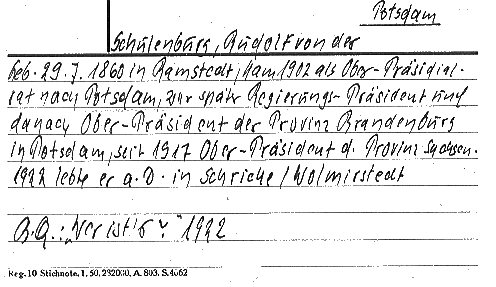 Potsdam
Schulenburg, Rudolf von der
Geb. 29.7. 1860 in Ramstedt, kam 1902 als Ober-Präsidial-
rat nach Potsdam, war später Regierungs-Präsident und
danach Ober-Präsident der Provinz Brandenburg
in Potsdam, seit 1917 Ober-Präsident d. Provinz Sachsen.
1922 lebte er a.D. in Schricke / Wolmirstedt
B.Q.: "Wer ist's?" 1922
Reg. 10 Stichnote, 1, 50, 232030, A. 803. S. 4062